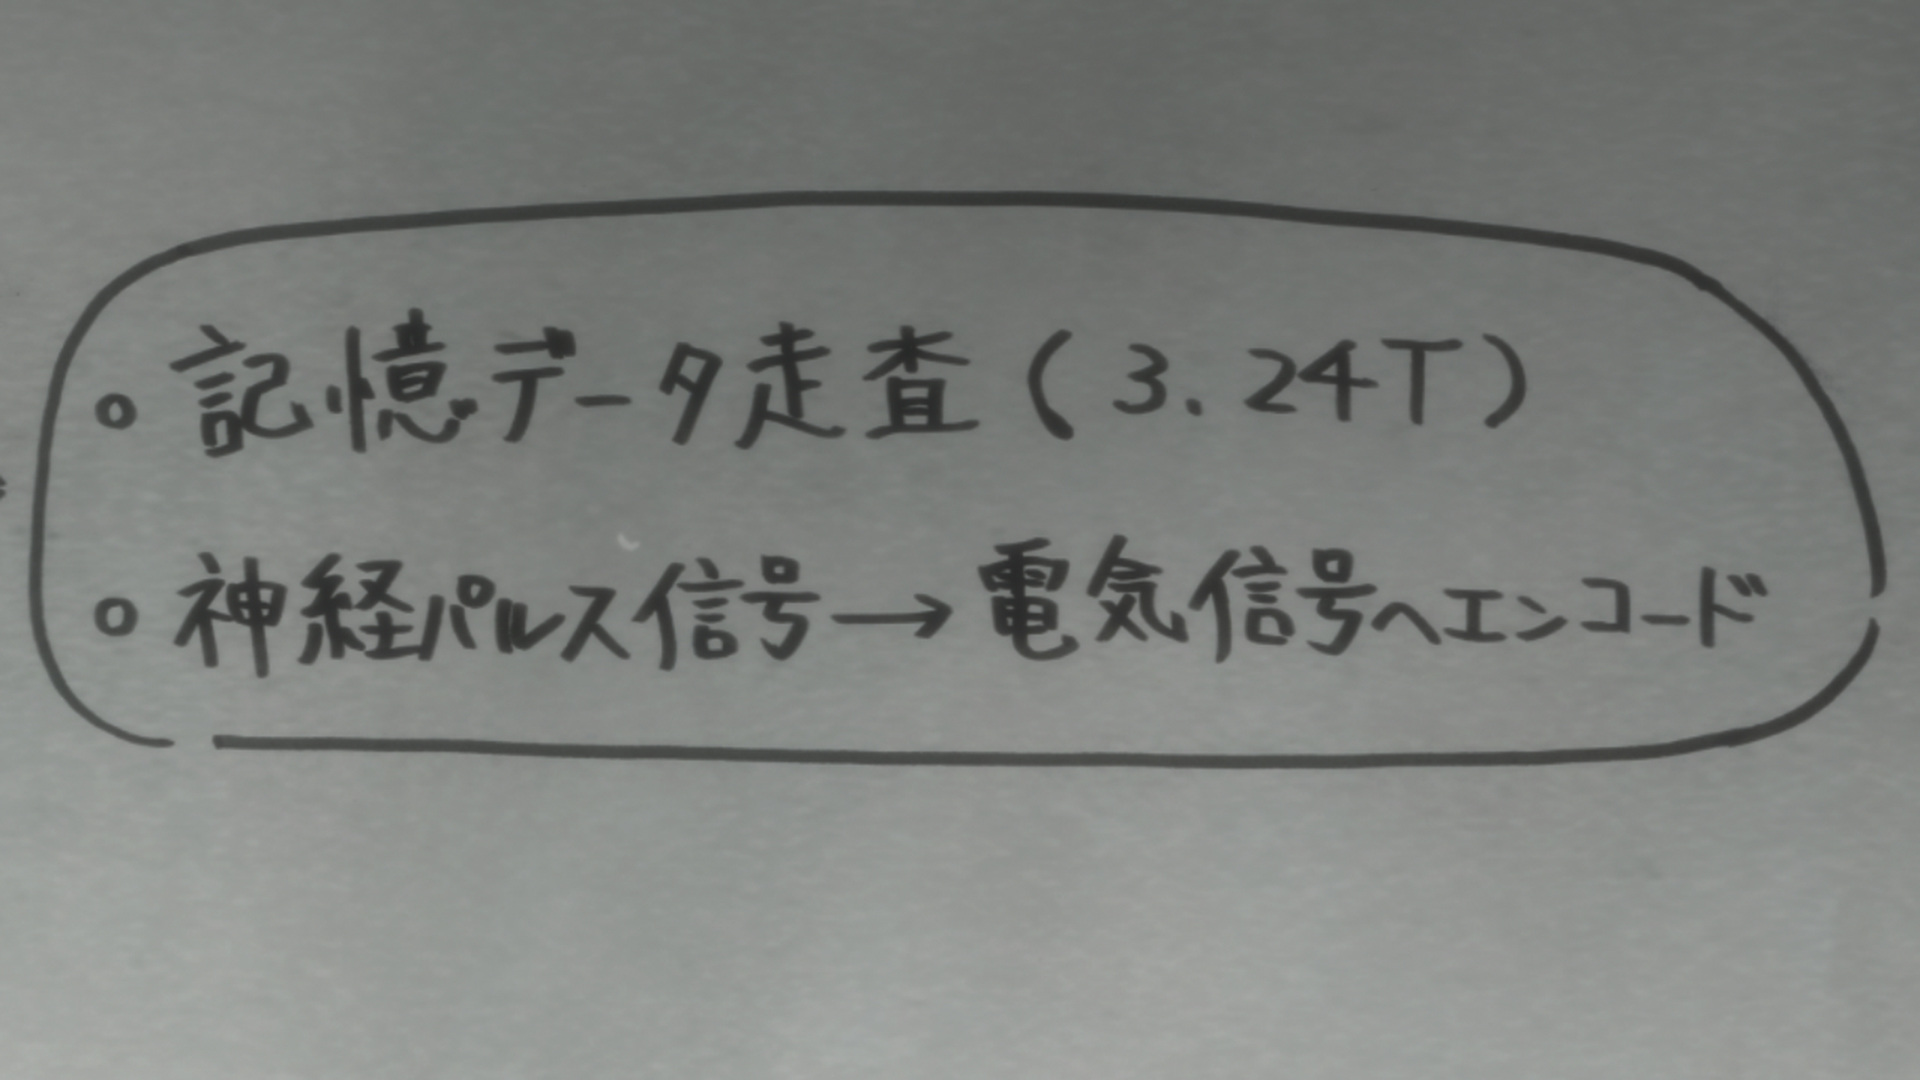 ○ 記憶データ走査(3.24T)
○ 神経パルス信号→電気信号へエンコード